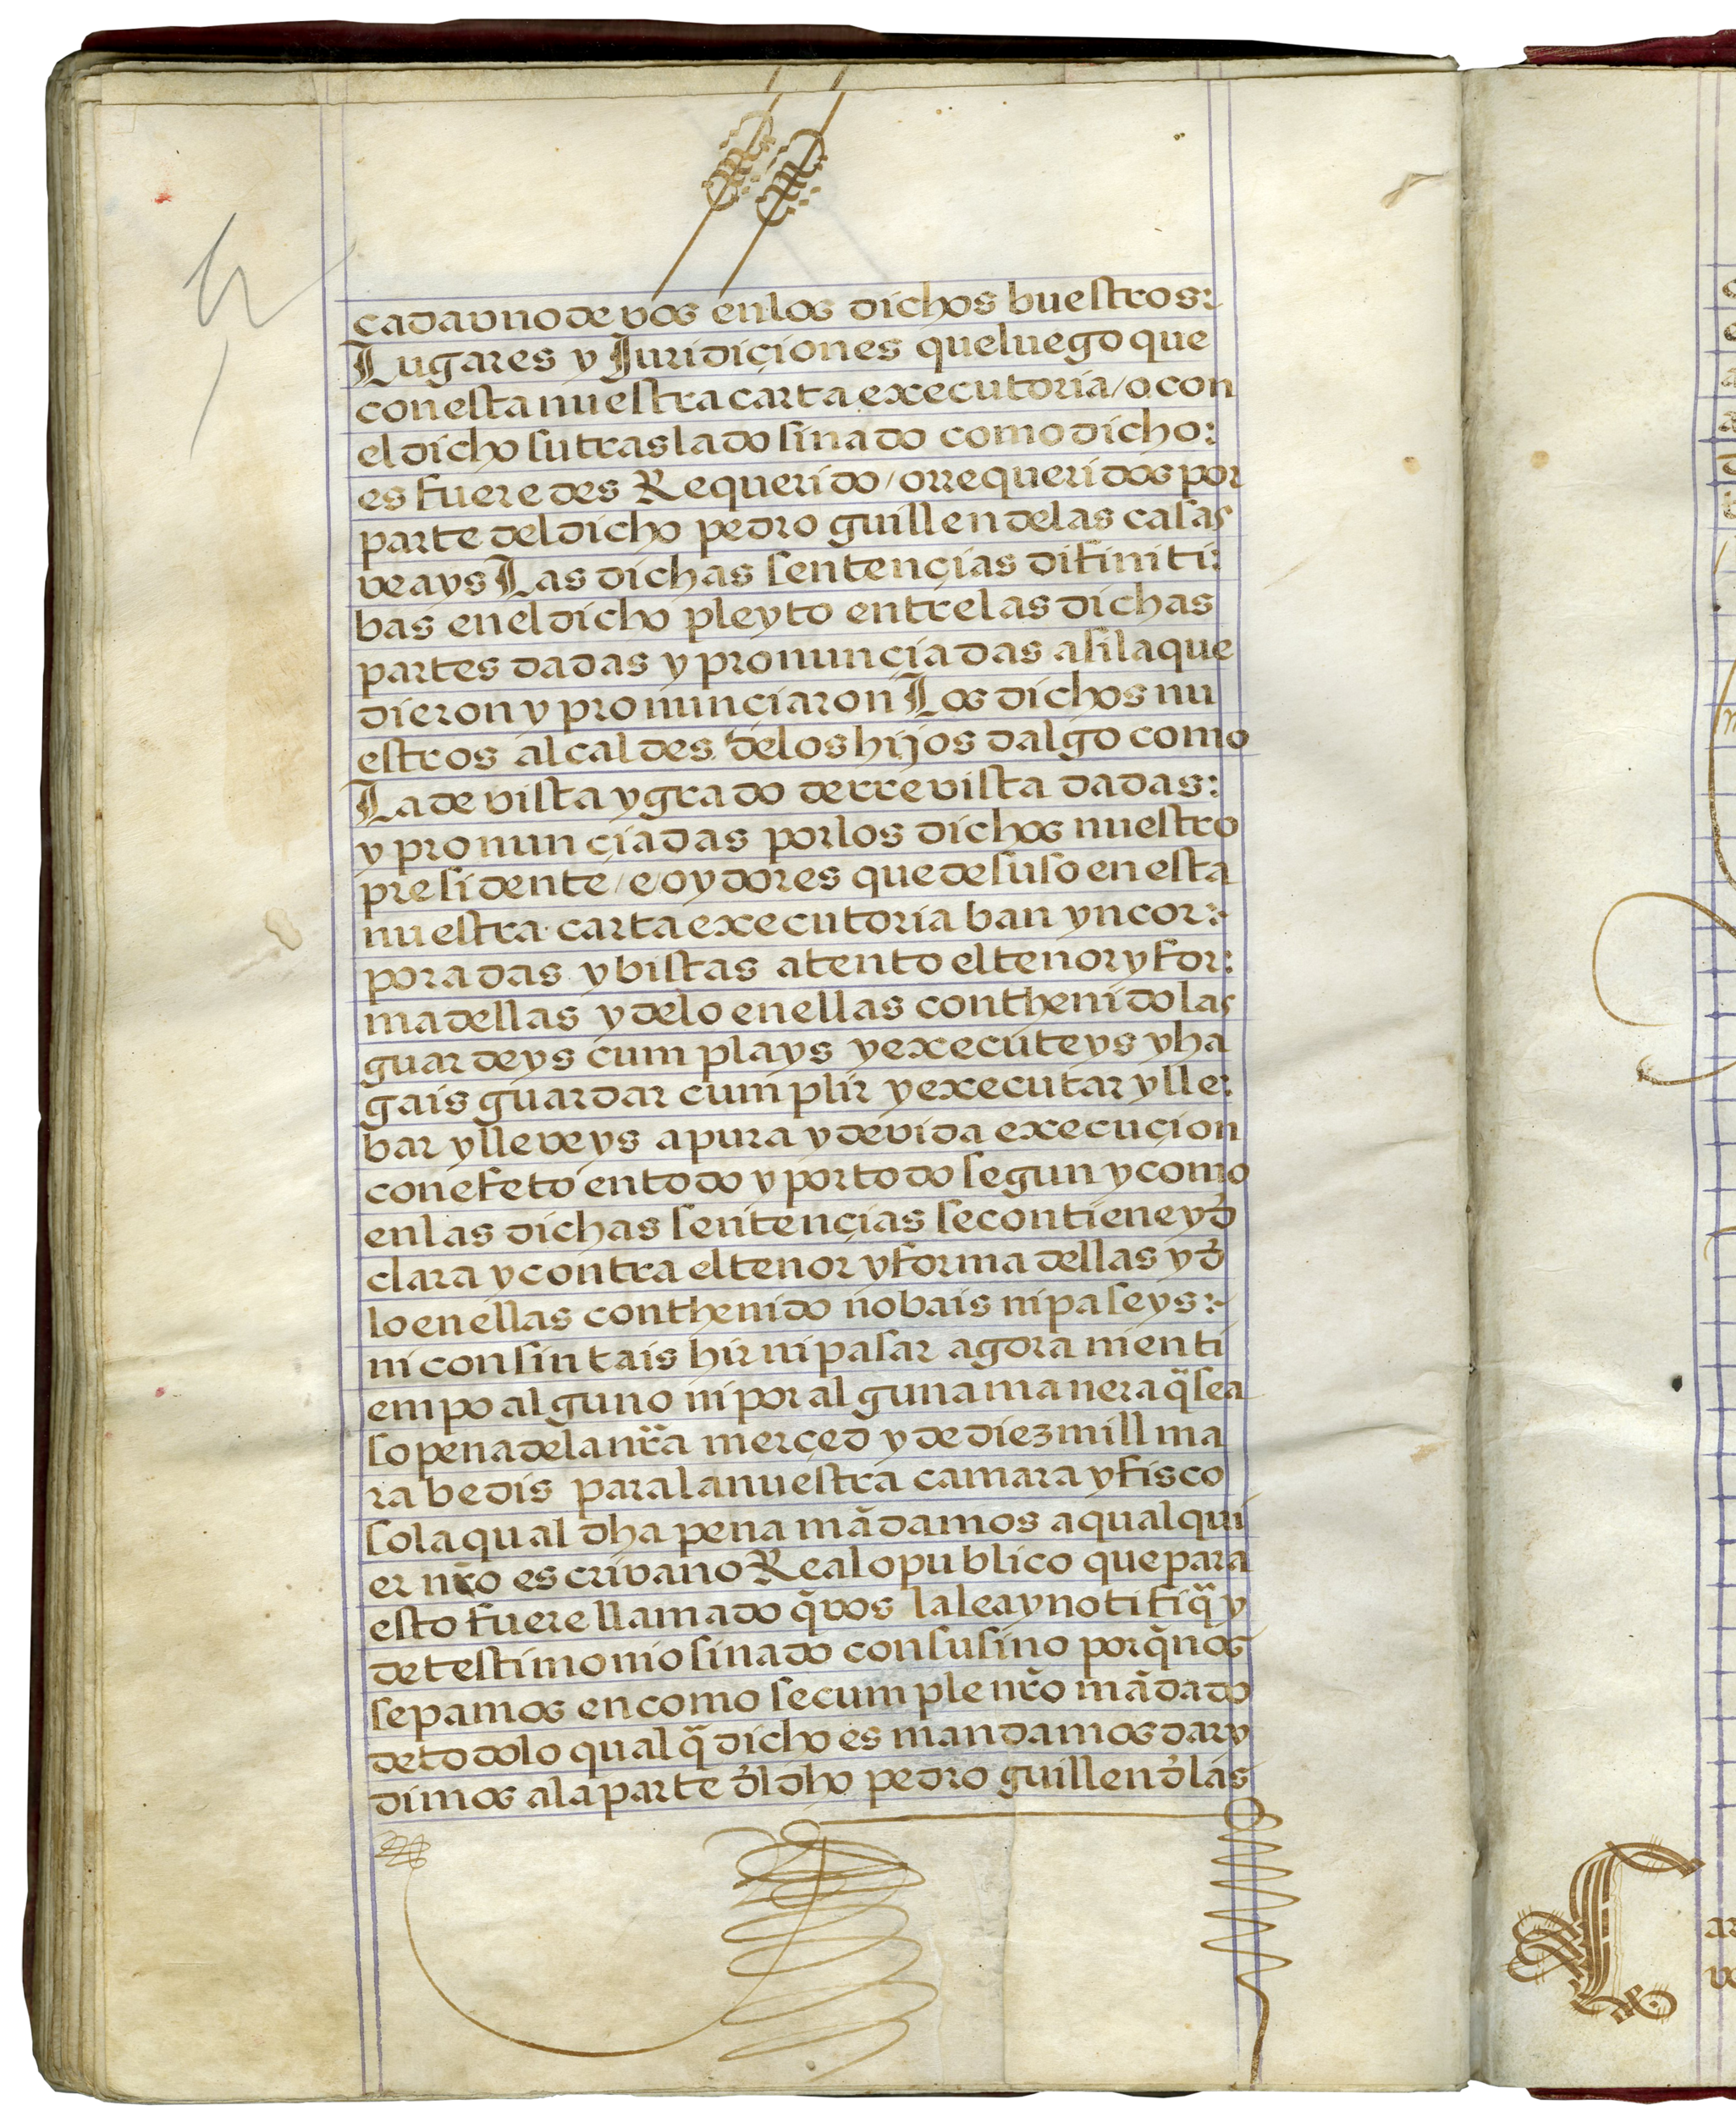 cada vno de vos en los dichos buestros:
Lugares y Juridiçiones que luego que
con esta nuestra carta executoria / o con
el dicho su traslado sinado como dicho:
es fueredes Requerido / o rrequeridos por
parte del dicho pedro guillen de las casas
veays Las dichas sentençias difiniti:
bas en el dicho pleyto entre las dichas
partes dadas y pronunçiadas asi la que
dieron y pronunçiaron Los dichos nu
estros alcaldes de los hijos dalgo como
La de vista y grado de rrevista dadas:
y pronunçiadas por los dichos nuestro
presidente / e / oydores que de suso en esta
nuestra carta executoria ban yncor:
poradas y bistas atento el tenor y for:
ma dellas y de lo en ellas conthenido las
guardeys cumplays y executeys y ha
gais guardar cumplir y executar y lle:
bar y lleveys a pura y devida execuçion
con efeto en todo y por todo segun y como
en las dichas sentençias se contiene y đ
clara y contra el tenor y forma dellas y đ
lo en ellas conthenido no bais ni paseys:
ni consintais hir ni pasar agora ni en ti
empo alguno ni por alguna manera q̃ sea
so pena de la nr̃a merçed y de diez mill ma
rabedis para la nuestra camara y fisco
so la qual dha pena mãdamos a qualqui
er nr̃o escrivano Real o publico que para
esto fuere llamado q̃ vos la lea y notifiq̃ y
de testimonio sinado con su sino porq̃ nos
sepamos en como se cumple nr̃o mãdado
de todo lo qual q̃ dicho es mandamos dar y
dimos a la parte đl dho pedro guillen đ las